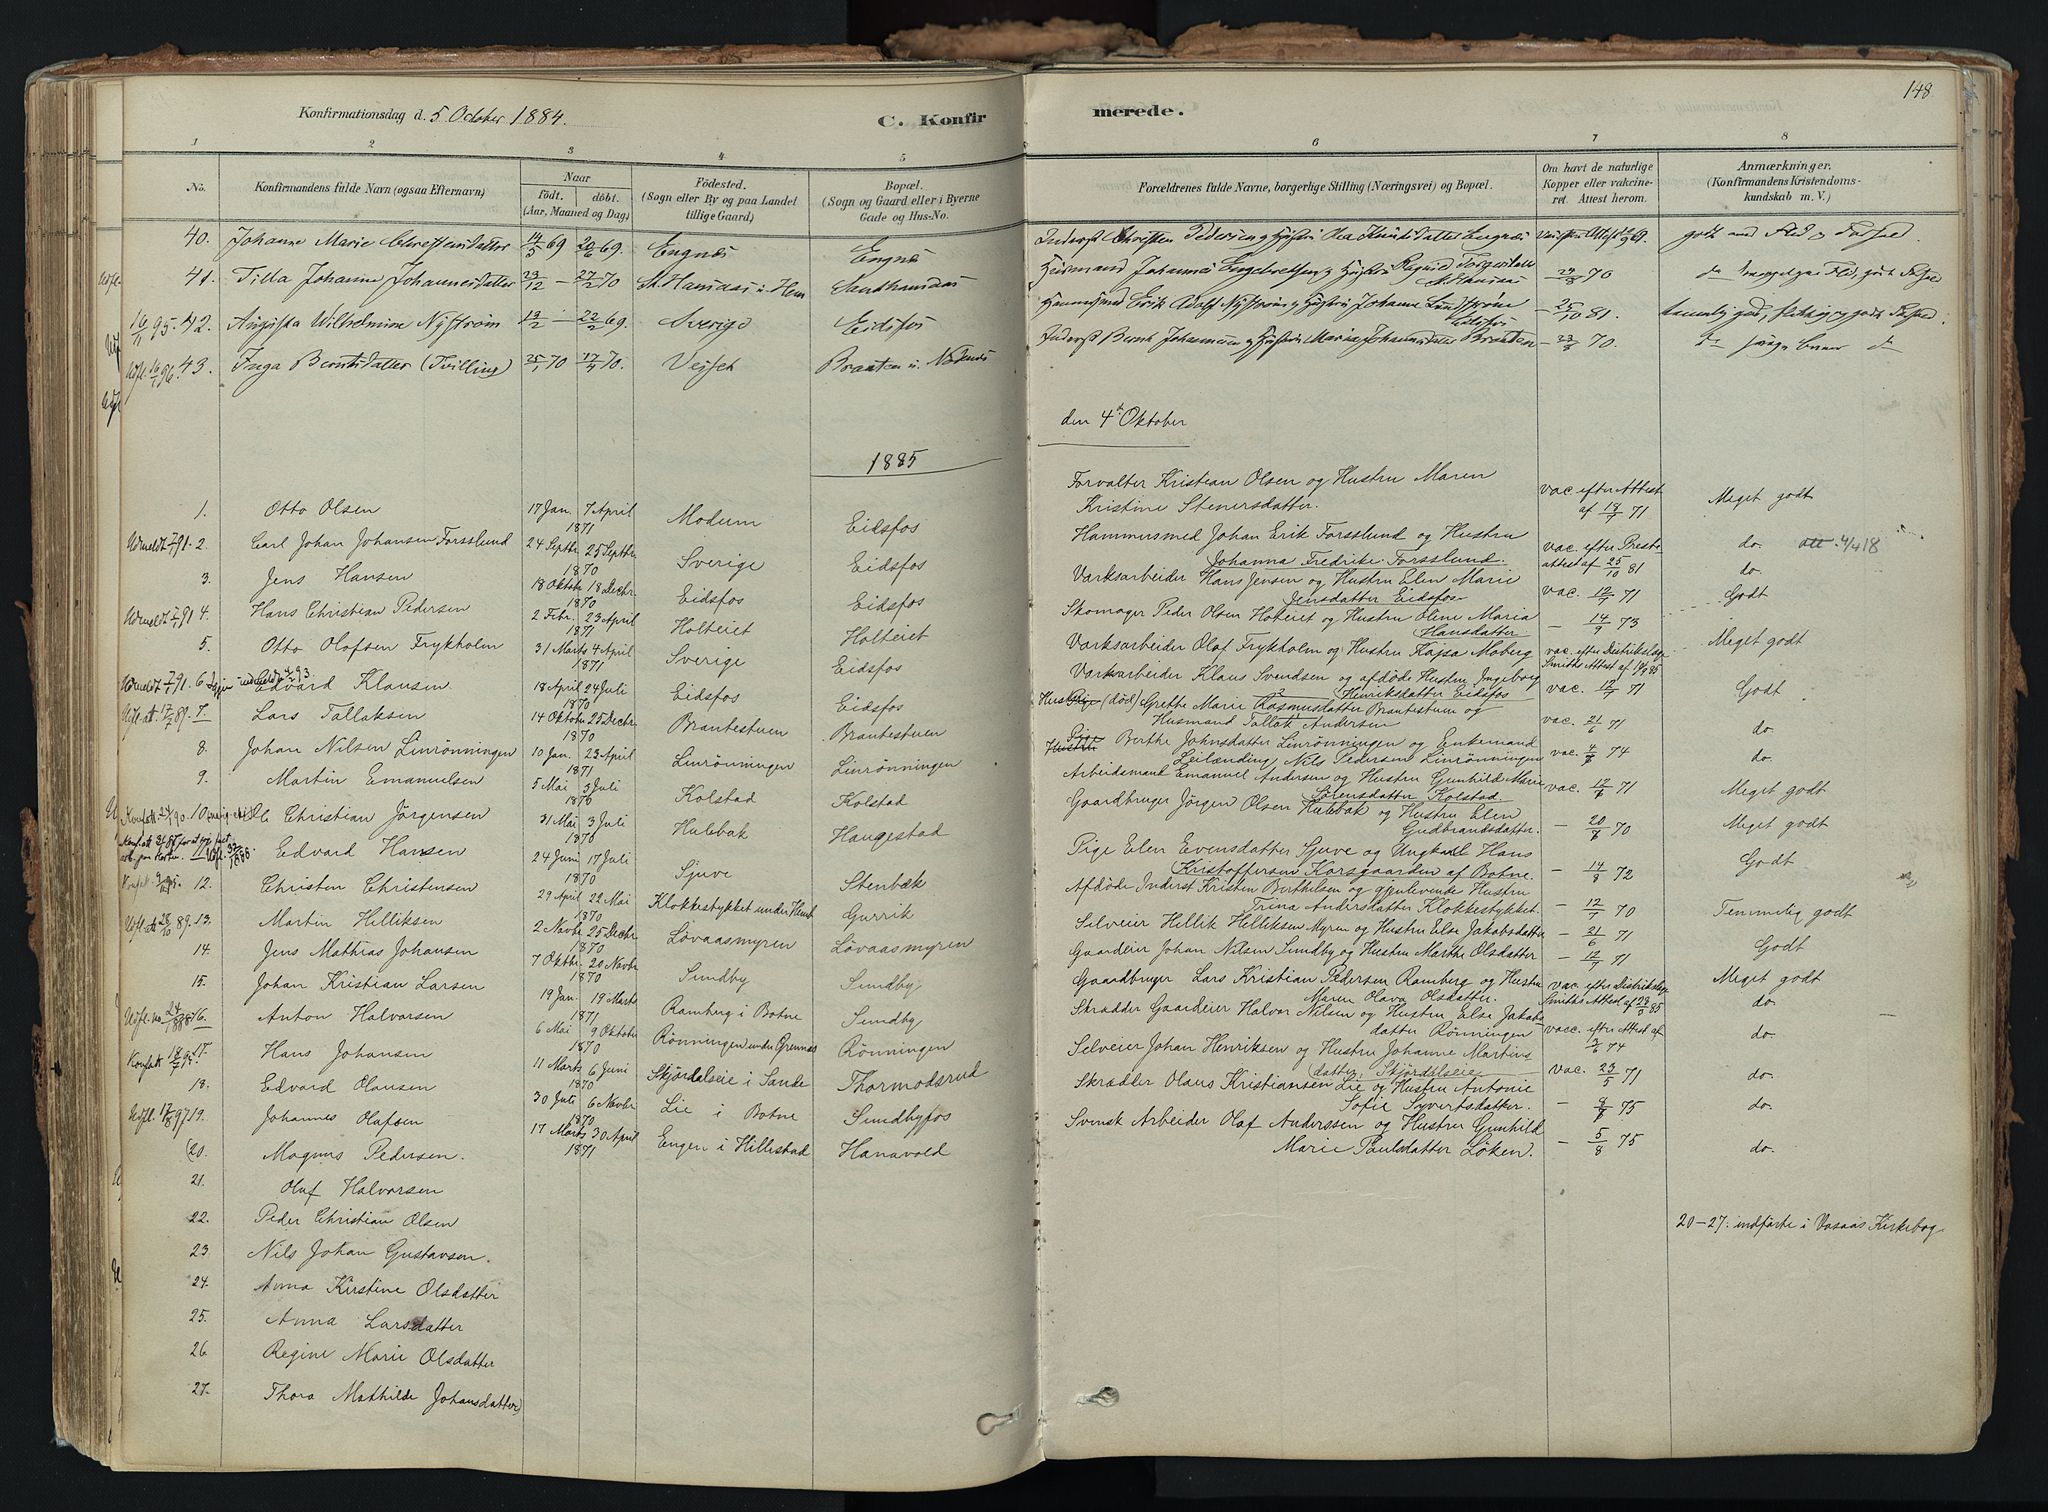 148
Konfirmationsdag d. 5 October 1884.
C. Konfir
merede.
1 2 3 4 5 6 7 8
No.
Konfirmandens fulde Navn (ogsaa Efternavn)
Naar
født. døbt.
(Aar, Maaned og Dag)
Födested.
(Sogn eller By og paa Landet
tillige Gaard)
Bopæl.
(Sogn og Gaard eller i Byerne
Gade og Hus-No.
Forældrenes fulde Navne, borgerlige Stilling (Næringsvei) og Bopæl.
Om havt de naturlige
Kopper eller vakcine-
ret. Attest herom.
Anmærkninger.
(Konfirmandens Kristendoms-
kundskab m. V.)
40. Johanne Marie Christensdatter 14/5 69 20/6 69. Engnæs Engnæs
41. Tilda Johanne Johannesdatter 23/12 — 27/2 70 St. Hansaas u. Hem Santhansaas
Husmand Johannes Engebretsen og Hustru Ragnid — 23/8 70
16/11 95. 42. Augusta Wilhelmine Nyström 13/2 — 22/2 69. Sverige Eidsfos
Hammersmed Erik Adolf Nyström og Hustru Johanne Lundström Eidsfos — 25/10 81.
Udfl. 16/1 96. 43. Inga Berntsdatter (Tvilling) 25/1 70 17/4 70. Vejset Braaten u.
Inderst Bernt Johannesen og Hustru Maria Johannesdatter Braaten — 23/8 70.
den 4de Oktober
1885
1. Otto Olsen 17 Jan. 7 April 1871 Modum Eidsfos
Forvalter Kristian Olsen og Hustru Maren
Kristine Stenersdatter. vac. efter Attest af 18/7 71 Meget godt
Udmeldt 7/1 91. 2. Carl Johan Johansen Forsslund 24 Septbr. 25 Septbr. 1870 Sverige Eidsfos
Hammersmed Johan Erik Forsslund og Hustru
Johanna Fredrike Forsslund. vac. efter Preste-attest af 25/10 81 do. att. 4/4 18
3. Jens Hansen 18 Oktobr 18 Decbr. 1870 Eidsfos Eidsfos
Varksarbeider Hans Jensen og Hustru Elen Marie
Jensdatter Eidsfos. vac. 12/7 71 do.
Udmeldt 7/1 91 4. Hans Christian Pedersen 2 Febr. 23 April 1871 Holteiet Holteiet
Skomager Peder Olsen Holteiet og Hustru Oline Maria
Hansdatter — 14/9 73 Godt
5. Otto Olafsen Frykholm 31 Marts 4 April 1871 Sverige Eidsfos
Varksarbeider Olaf Frykholm og Hustru Kajsa Moberg vac. efter Distriktslæge Smiths Attest af 14/9 85 Meget godt
Udmeldt 7/1 91. 6 Edvard Klausen 18 April 24 Juli 1870 Eidsfos Eidsfos
Varksarbeider Klaus Svendsen og afdöde Hustru Ingeborg
Henriksdatter Eidsfos vac. 12/7 71 Godt
Udfl. att. 17/2 89. 7. Lars Tallaksen 14 Oktober 25 Decbr. 1870 Brantestuen Brantestuen
(död) Grethe Marie Rasmusdatter Brantestuen og
Husmand Tallak Andersen vac. 21/6 71 do.
8. Johan Nilsen Linrönningen 10 Jan. 23 April 1871 Linrönningen Linrönningen
Pige Berthe Johnsdatter Linrönningen og Enkemand
Leilænding Nils Pedersen Linrönningen vac. 74 do.
9. Martin Emanuelsen 5 Mai 3 Juli 1870 Kolstad Kolstad
Arbeidsmand Emanuel Andersen og Hustru Gunhild Marie
Sörensdatter Kolstad. vac. 12/7 71 Meget godt
10 Christian Jörgensen 31 Mai 3 Juli 1870 Hulebak Haugestad
Gaardbruger Jörgen Olsen Hulebak og Hustru Elen
Gudbrandsdatter. — 70 Meget godt
11 Edvard Hansen 24 Juni 17 Juli 1870 Sjuve Stenbæk
Pige Elen Evensdatter Sjuve og Ungkarl Hans
Kristoffersen Korsgaarden af Botne. — 14/8 72 Godt
12. Christen Christensen 29 April 22 Mai 1870 Klokkestykket under Hemb Gurrik
Afdöde Inderst Kristen Berthelsen og gjenlevende Hustru
Trina Andersdatter Klokkestykket. — 12/7 70 Temmelig godt
Udfl. att. 28/10 89. 13. Martin Helliksen 2 Novbr 25 Decbr 1870 Lövaasmyren Lövaasmyren
Selveier Hellik Helliksen Myren og Hustru Else Jakobsdatter — 21/6 71 Godt
14. Jens Mathias Johansen 7 Oktbr. 20 Novbr 1870 Sundby Sundby
Gaardeier Johan Nilsen Sundby og Hustru Marthe Olsdatter — 12/7 71 Meget godt
15. Johan Kristian Larsen 19 Jan. 19 Marts 1871 Ramberg i Botne Sundby
Gaardbruger Lars Kristian Pedersen Ramberg og Hustru
Maren Olava Olsdatter. vac. efter Distriktslæge Smiths Attest af 23/5 85 do.
16. Anton Halvorsen 6 Mai 9 Oktober 1870 Rönningen under Grennes Rönningen
Skrædder Gaardeier Halvor Nilsen og Hustru Else Jakobs
datter Rönningen vacc. efter Attest af 3/6 74 do.
17. Hans Johansen 11 Marts 6 Juni 1870 Skjördalseie i Sande Thormodsrud
Selveier Johan Henriksen og Hustru Johanne Martins
datter Skjördalseie vac. 23/5 71 do.
18. Edvard Olausen 30 Juli 6 Novbr 1870 Lie i Botne Sundbyfos
Skrædder Olaus Kristiansen Lie og Hustru Antonie
Sofie Syvertsdatter. — 75 do.
Udfl. 17/8 97 19. Johannes Olafsen 17 Marts 30 April 1871 Engen i Hillestad Hanavold
Svensk Arbeider Olaf Anderssen og Hustru Gunhild
Marie Paulsdatter Löken. — 5/8 75 do.
(20. Magnus Pedersen.
21. Oluf Halvorsen
22. Peder Christian Olsen
20-27: indförte i Vasaas Kirkebog
23. Nils Johan Gustavsen.
24. Anna Kirstine Olsdatter
25. Anna Larsdatter
26. Regine Marie Olsdatter
27. Thora Mathilde Johansdatter)